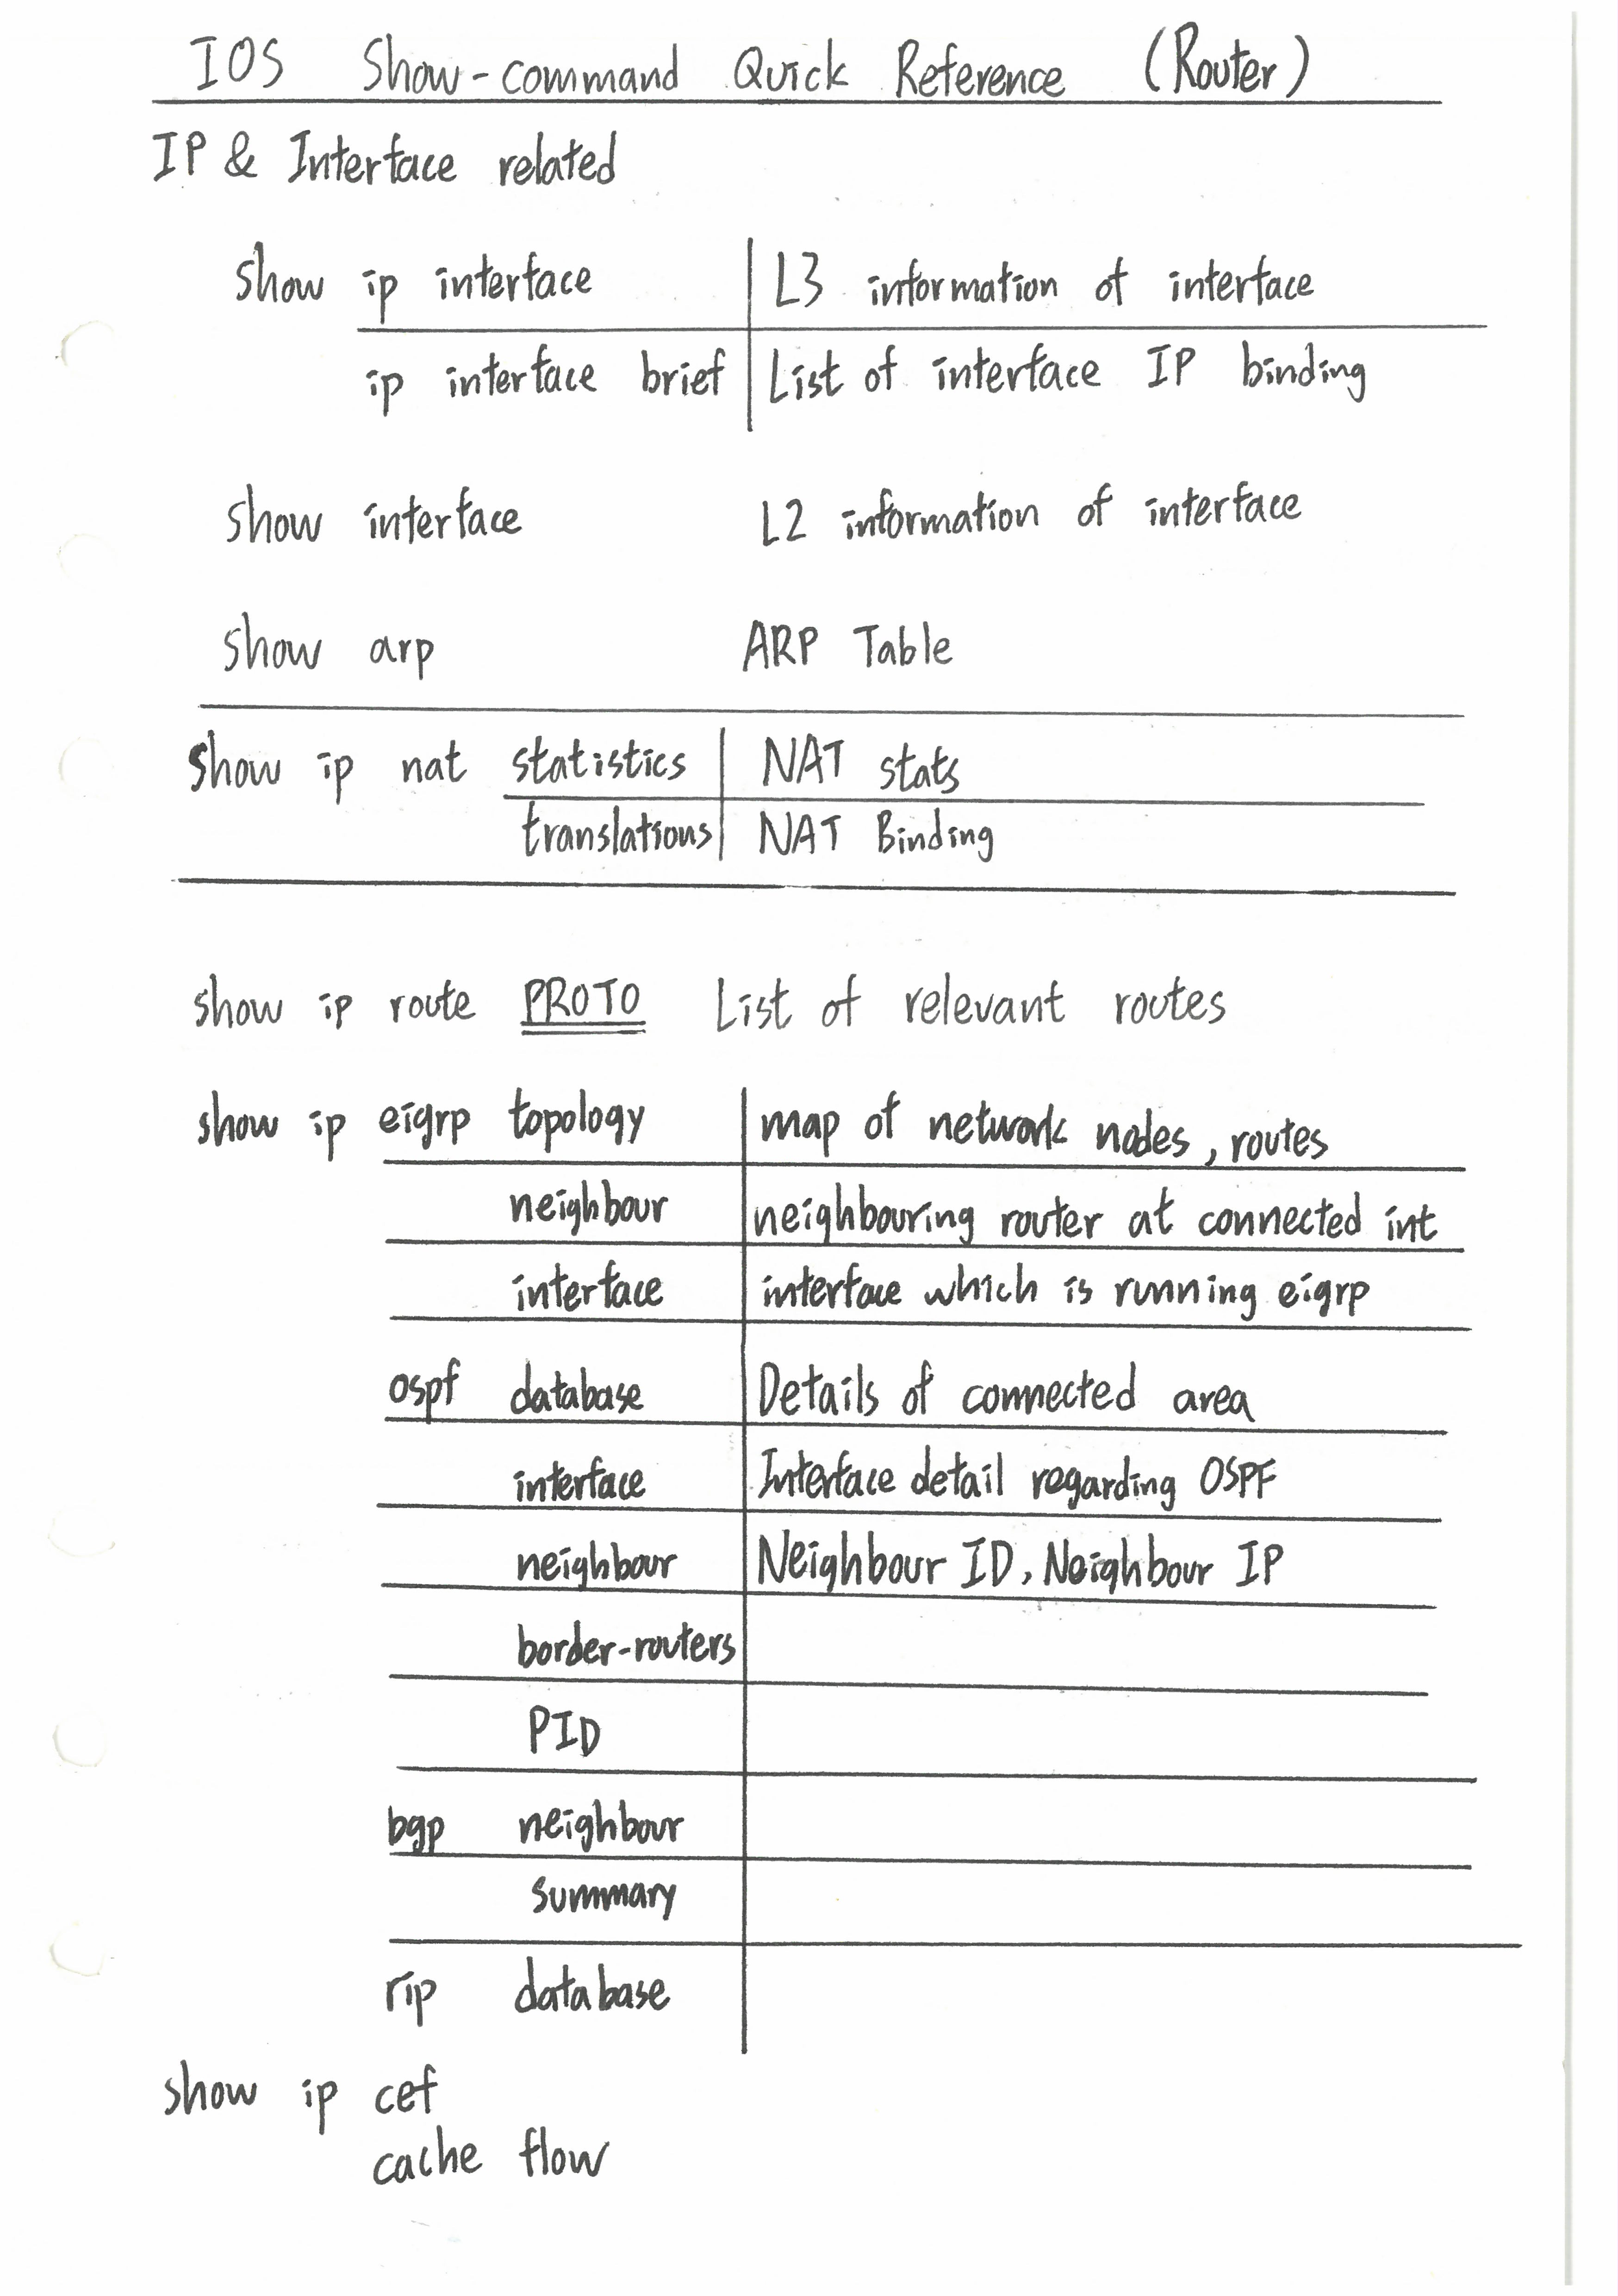 IOS Show-command Quick Reference (Router)
IP & Interface related
show ip interface L3 information of interface
ip interface brief List of interface IP binding
show interface L2 information of interface
show arp ARP Table
show ip nat statistics NAT stats
translations NAT Binding
show ip route PROTO List of relevant routes
show ip eigrp topology map of network nodes, routes
neighbour neighbouring router at connected int
interface interface which is running eigrp
ospf database Details of connected area
interface Interface detail regarding OSPF
neighbour Neighbour ID, Neighbour IP
border-routers
PID
bgp neighbour
summary
rip database
show ip cef
cache flow